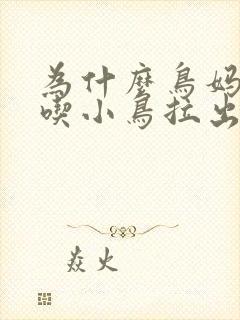 為什麼鳥媽
喫小鳥拉出
焱火